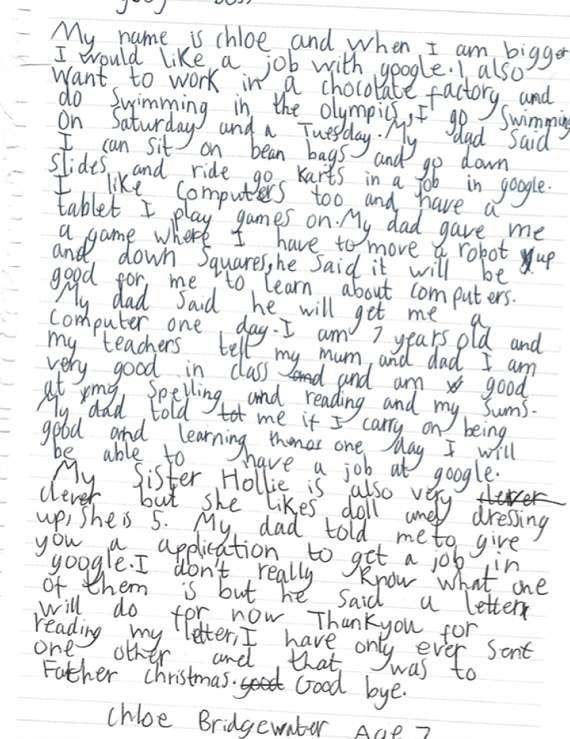 My name is chloe and when I am bigger
I would like a job with google. I also
want to work in a chocolate factory and
do swimming in the olympics, I go swimming
on Saturday and a Tuesday. My dad said
I can sit on bean bags and go down
slides and ride go karts in a job in google.
I like computers too and have a
tablet I play games on. My dad gave me
a game where I have to move a robot up
and down squares, he said it will be
good for me to learn about computers.
My dad said he will get me a
computer one day. I am 7 years old and
my teachers tell my mum and dad I am
very good in class and and am good
at my spelling and reading and my sums.
My dad told me if I carry on being
good and learning one day I will
be able to have a job at google.
My sister Hollie is also very clever
clever but she likes doll and dressing
up, she is 5. My dad told me to give
you a application to get a job in
google. I don't really know what one
of them is but he said a letter
will do for now Thankyou for
reading my letter, I have only ever sent
one other and that was to
Father christmas. good Good bye.
Chloe Bridgewater Age 7